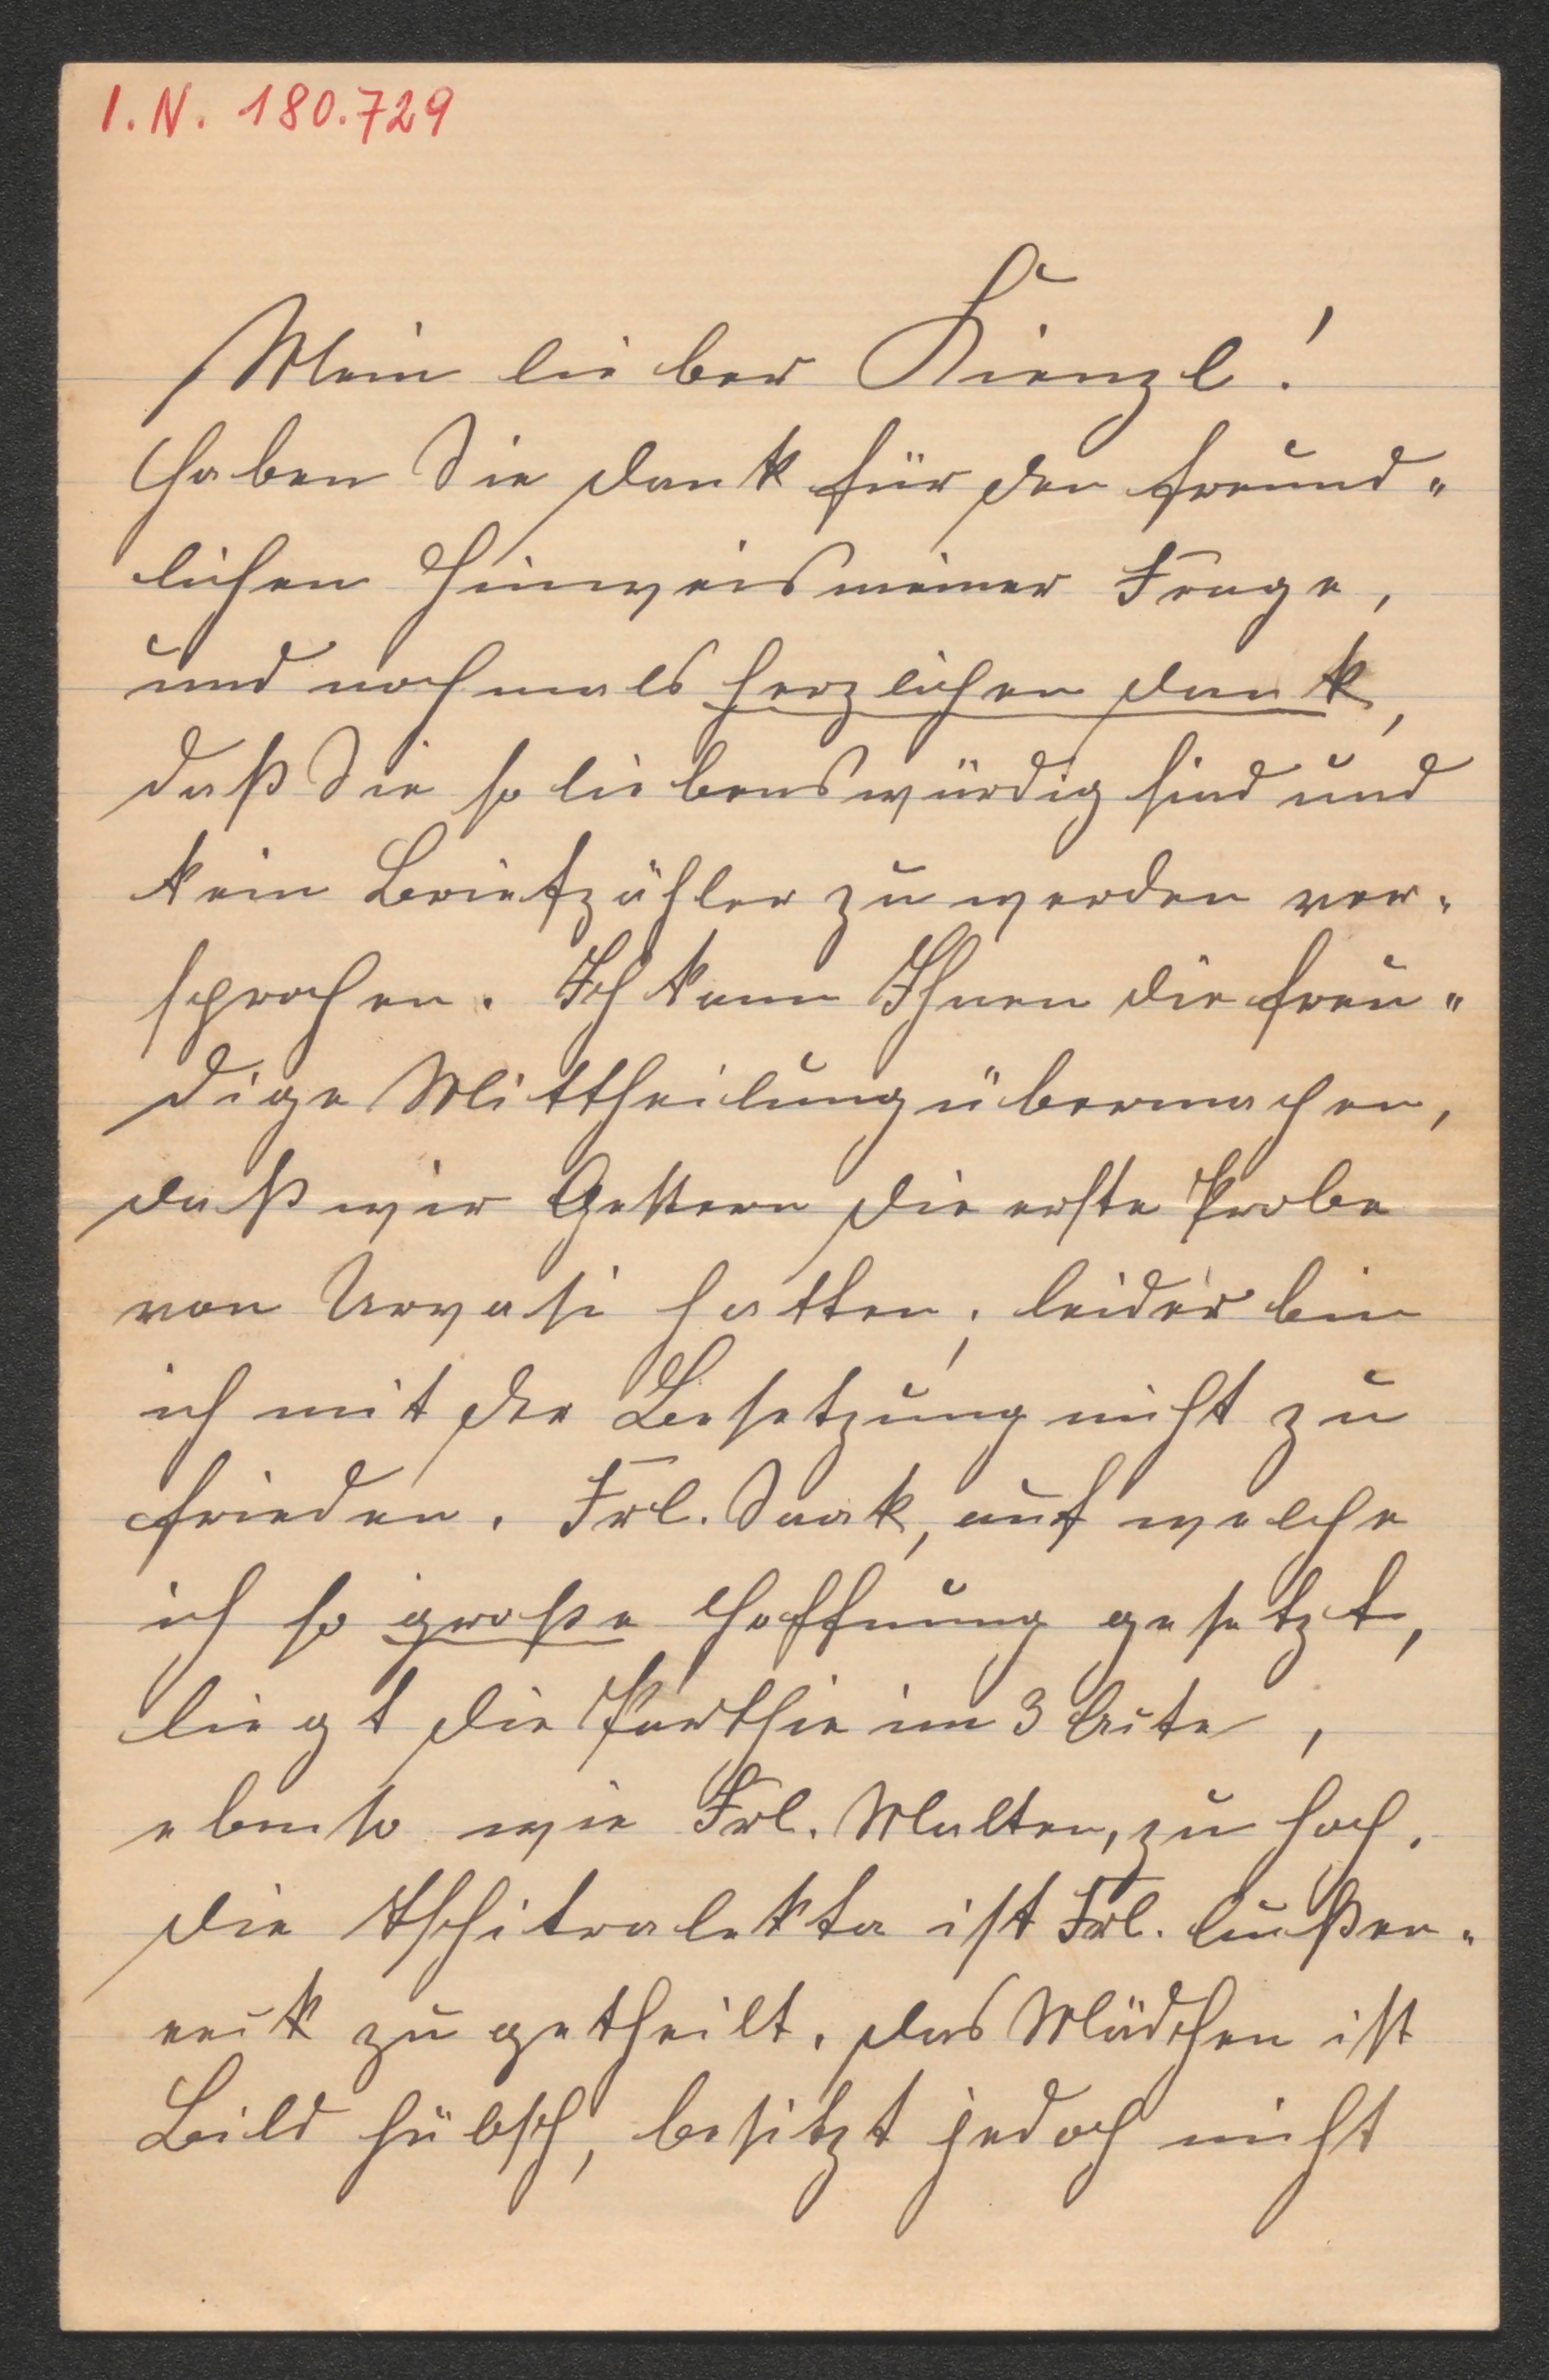 I. N. 180.729
Mein lieber Kienzl!
Haben Sie Dank für den freund„
lichen Hinweis meiner Frage,
und nochmals herzlichen Dank,
daß Sie so liebenswürdig sind und
kein Briefzähler zu werden ver„
sprachen. Ich kann Ihnen die freu„
dige Mittheilung übermachen,
daß wir Gestern die erste Probe
von Urvasi hatten; leider bin
ich mit der Besetzung nicht zu
frieden. Frl. Saak, auf welche
ich so große Hoffnung gesetzt,
liegt die Parthie im 3 Acte,
ebenso wie Frl. Malten, zu hoch.
Die Tschitralekta ist Frl.
zu getheilt. Das Mädchen ist
Bild hübsch, besitzt jedoch nicht